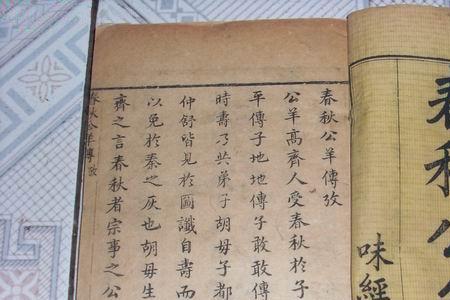 春秋公羊傳攷
公羊高齊人受春秋於子
平傳子地地傳子敢敢傳
時壽乃共弟子胡母子都
仲舒皆見於圖讖自壽而
以免於秦之灰也胡母生
齊之言春秋者宗事之公
春秋公羊傳攷
春秋公
味經